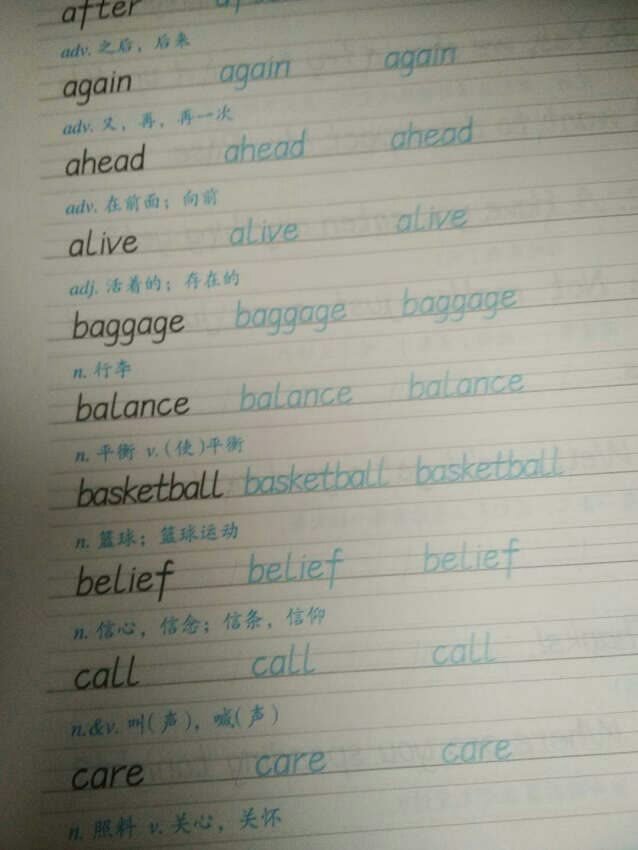 after
adv. 之后，后来
again again again
adv. 又，再，再一次
ahead ahead ahead
adv. 在前面；向前
alive alive alive
adj. 活着的；存在的
baggage baggage baggage
n. 行李
balance balance balance
n. 平衡 v. (使)平衡
basketball basketball basketball
n. 篮球；篮球运动
belief belief belief
n. 信心，信念；信条，信仰
call call call
n.&v. 叫(声)，喊(声)
care care care
n. 照料 v. 关心，关怀